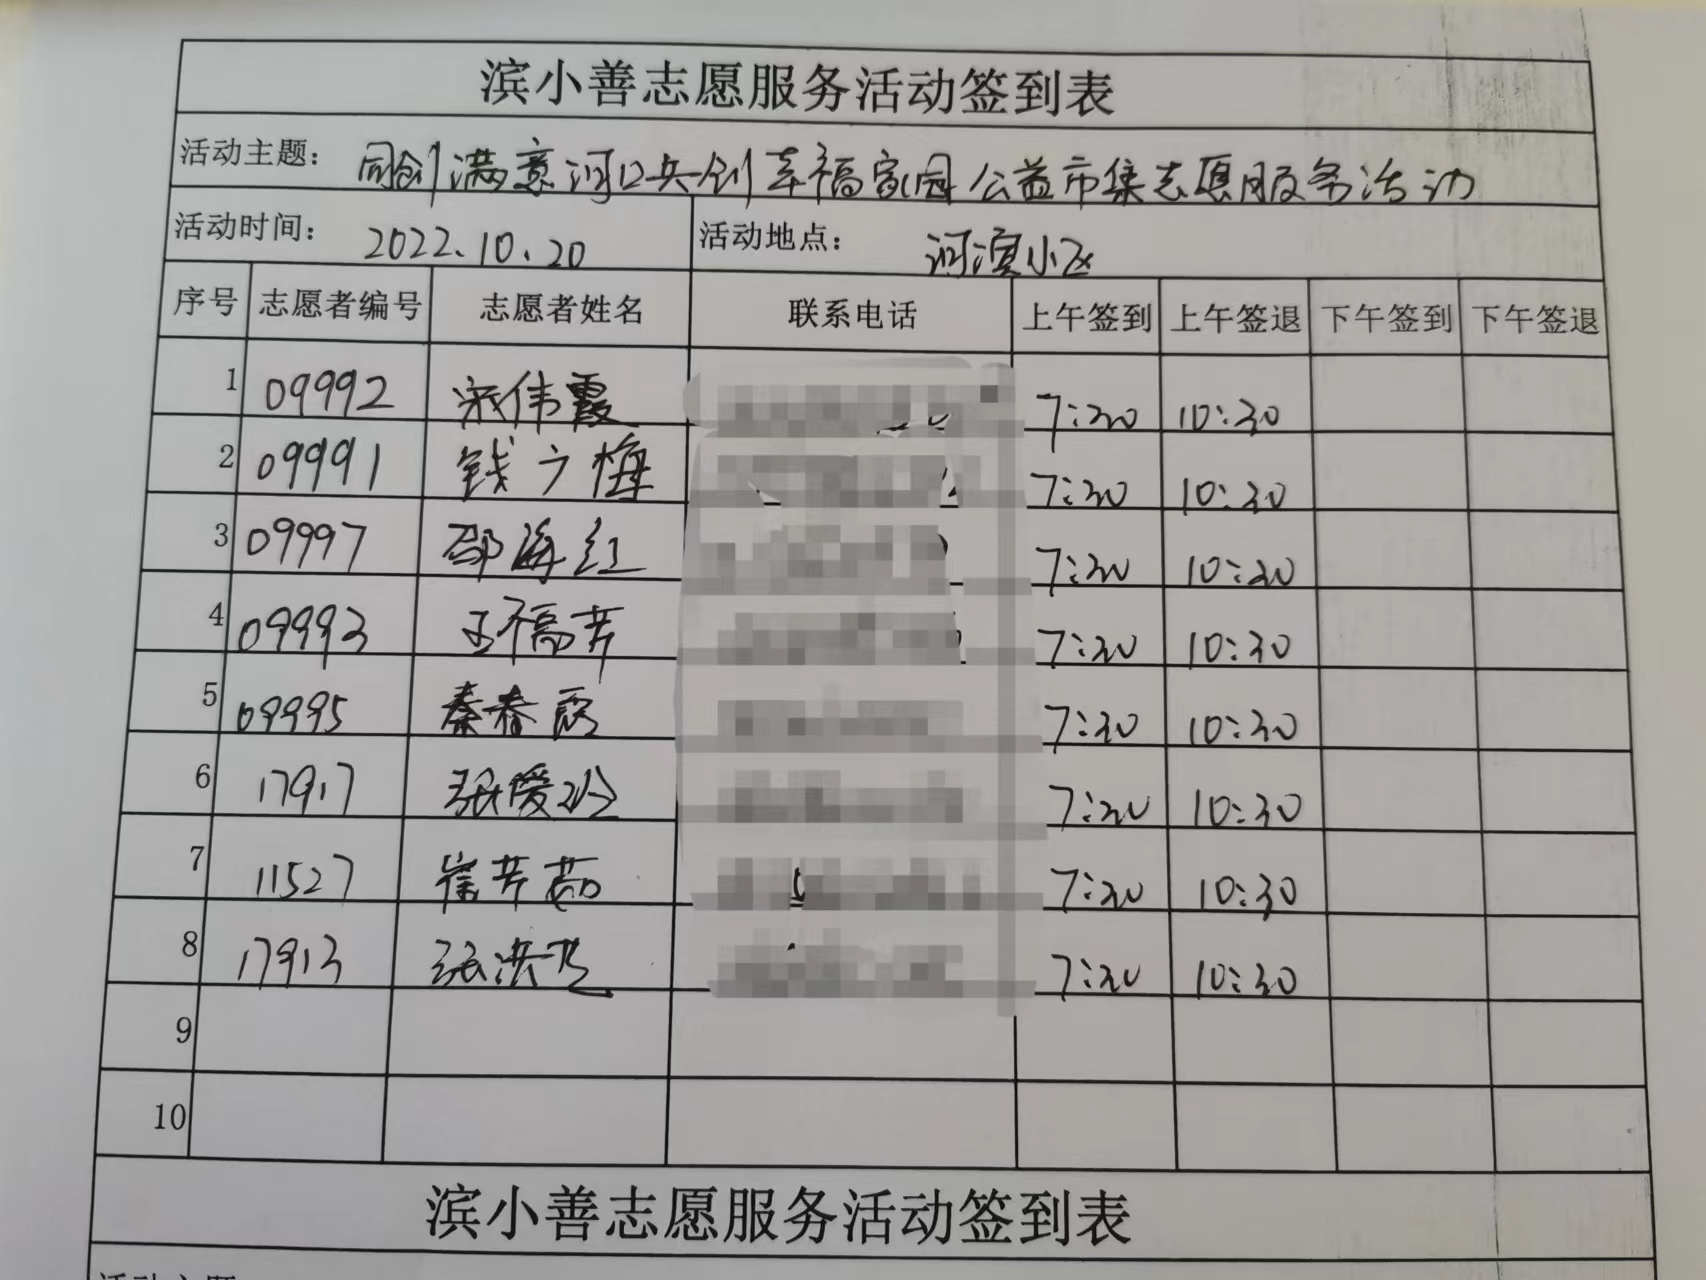 滨小善志愿服务活动签到表
活动主题： 同创满意河口共创幸福家园公益市集志愿服务活动
活动时间： 2022.10.20 活动地点： 河滨小区
序号 志愿者编号 志愿者姓名 联系电话 上午签到 上午签退 下午签到 下午签退
1 09992 宋伟霞 7:30 10:30
2 09991 钱广梅 7:30 10:30
3 09997 邵海红 7:30 10:30
4 09993 王福芹 7:30 10:30
5 09995 秦春霞 7:30 10:30
6 17917 张爱玲 7:30 10:30
7 11527 崔芹茹 7:30 10:30
8 17913 张洪 7:30 10:30
9
10
滨小善志愿服务活动签到表
活动主题